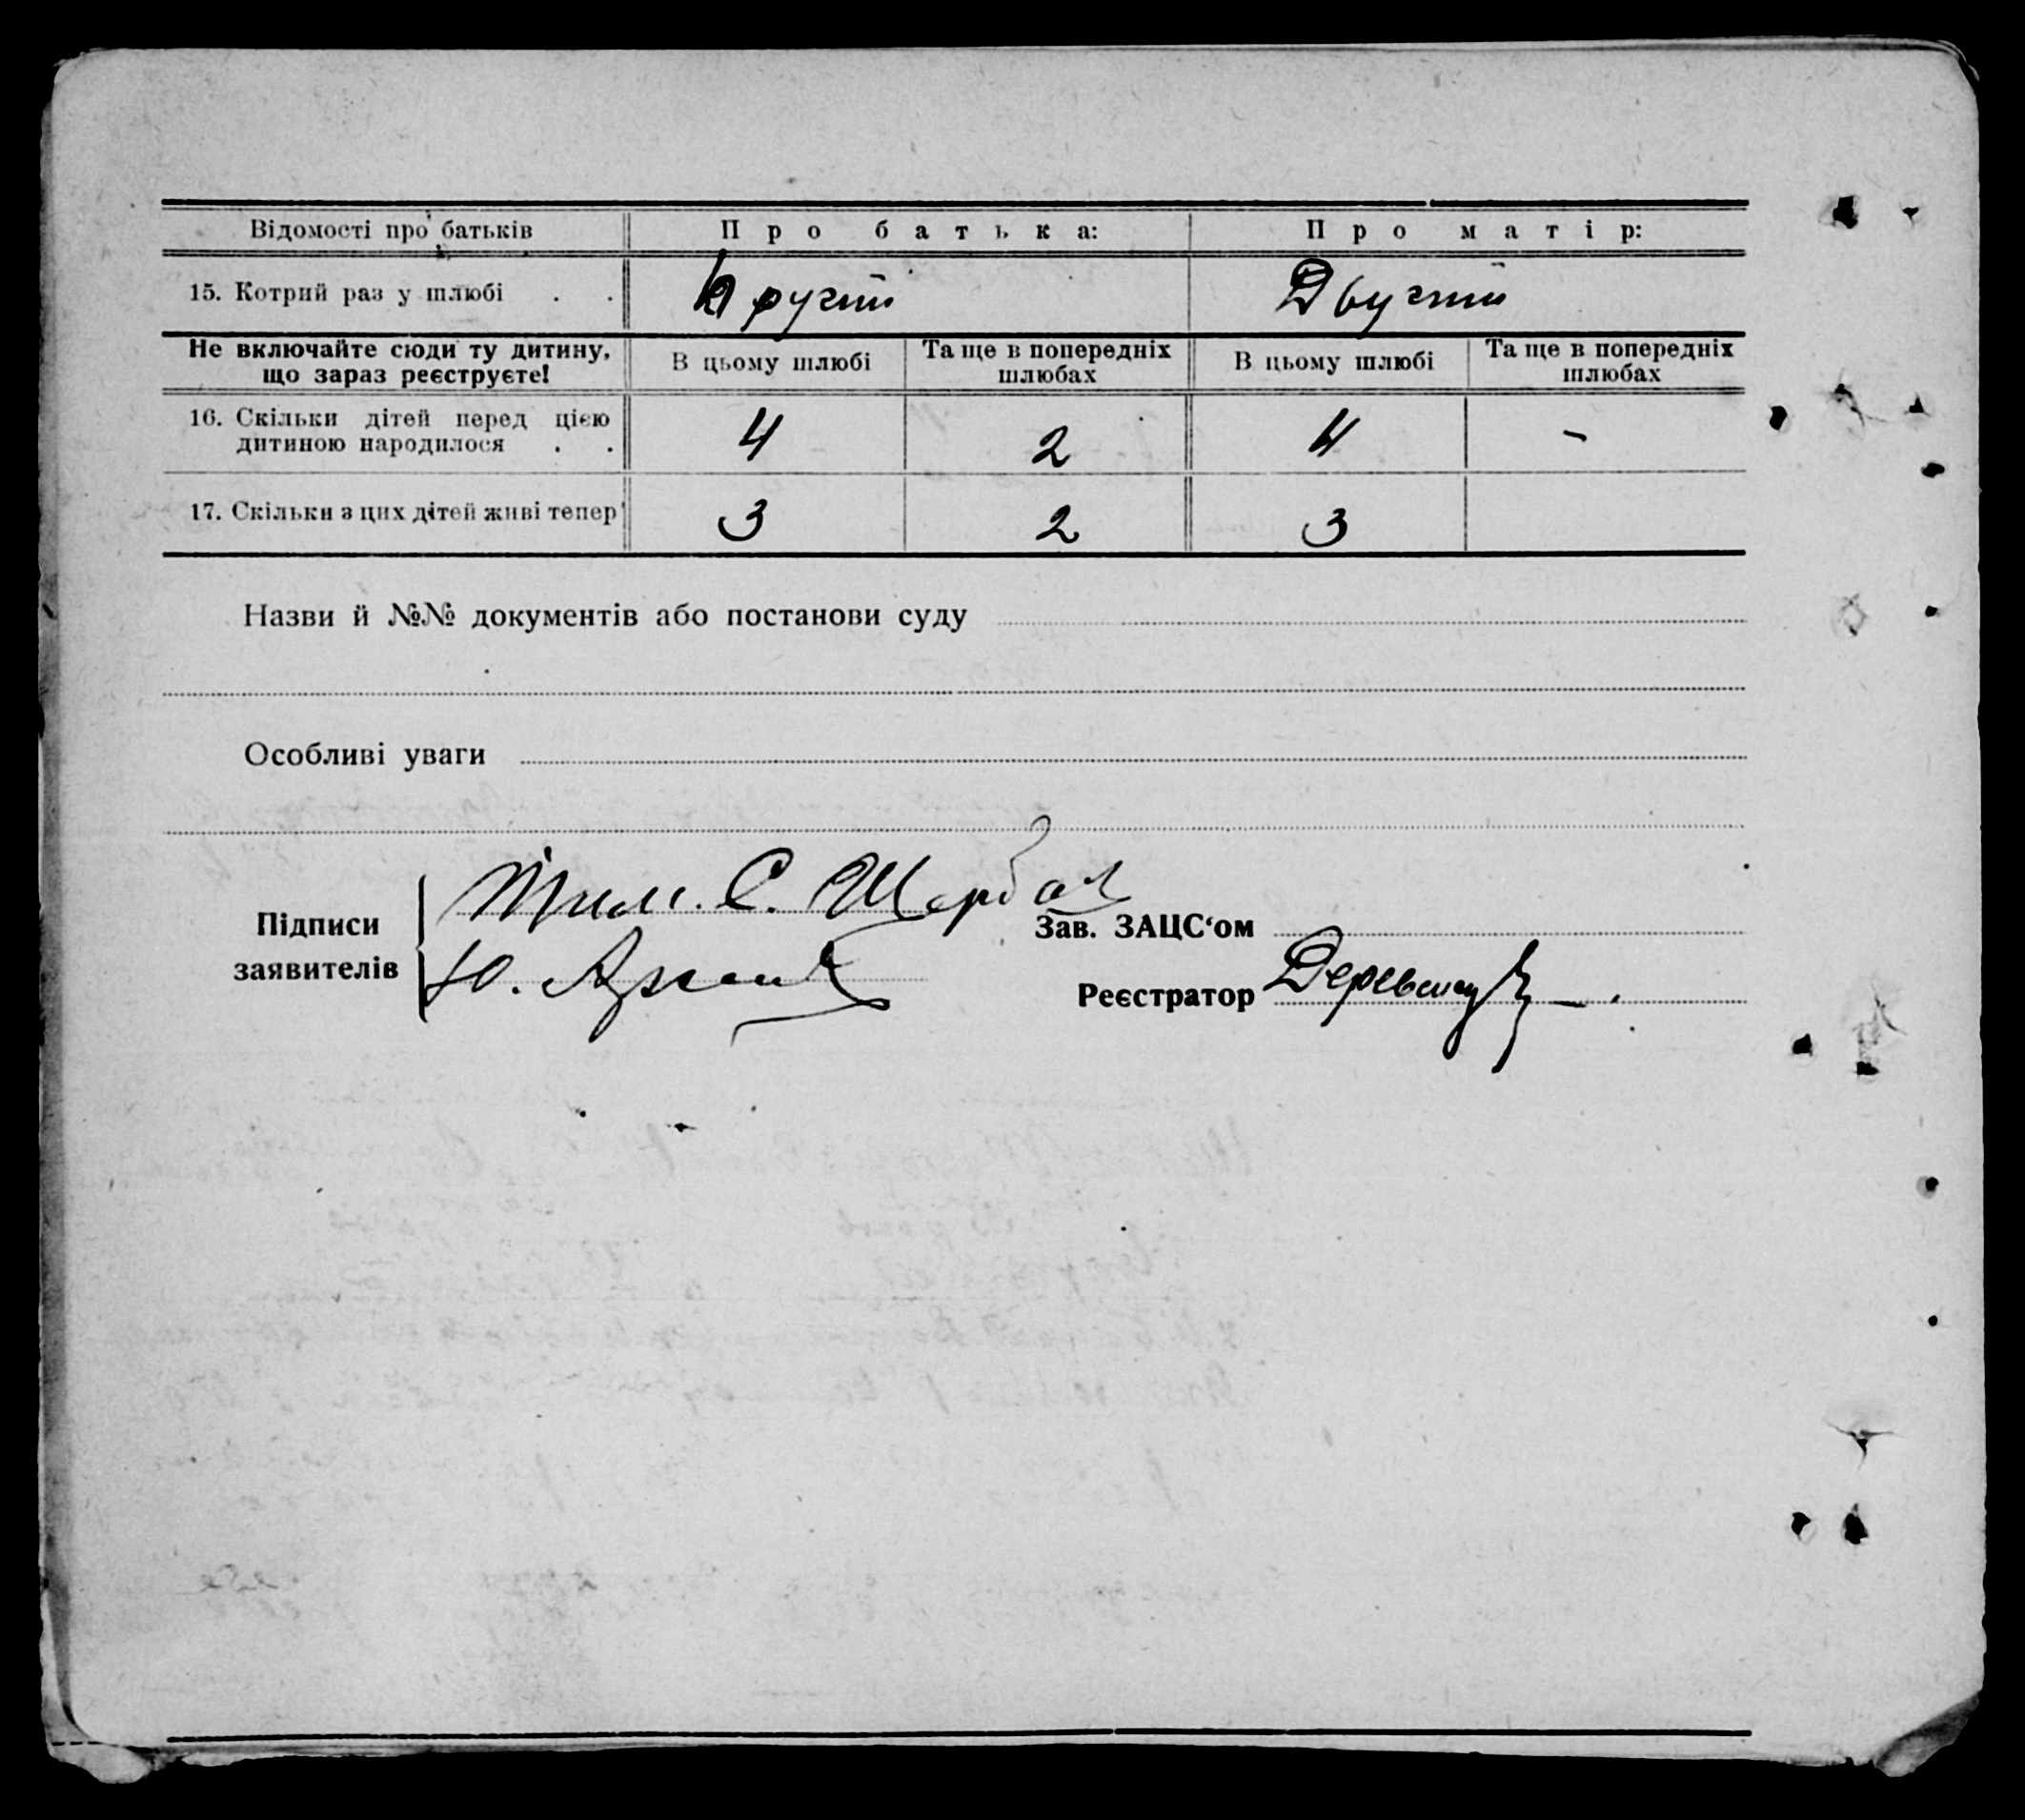 Відомості про батьків Про батька: Про матір:
15. Котрий раз у шлюбі . . Другий Другий
Не включайте сюди ту дитину, що зараз реєструєте! В цьому шлюбі Та ще в попередніх шлюбах В цьому шлюбі Та ще в попередніх шлюбах
16. Скільки дітей перед цією
дитиною народилося . . 4 2 4 -
17. Скільки з цих дітей живі тепер 3 2 3
Назви й №№ документів або постанови суду
Особливі уваги
Підписи заявителів
С. Щербак
Ю.
Зав. ЗАЦС‘ом
Реєстратор